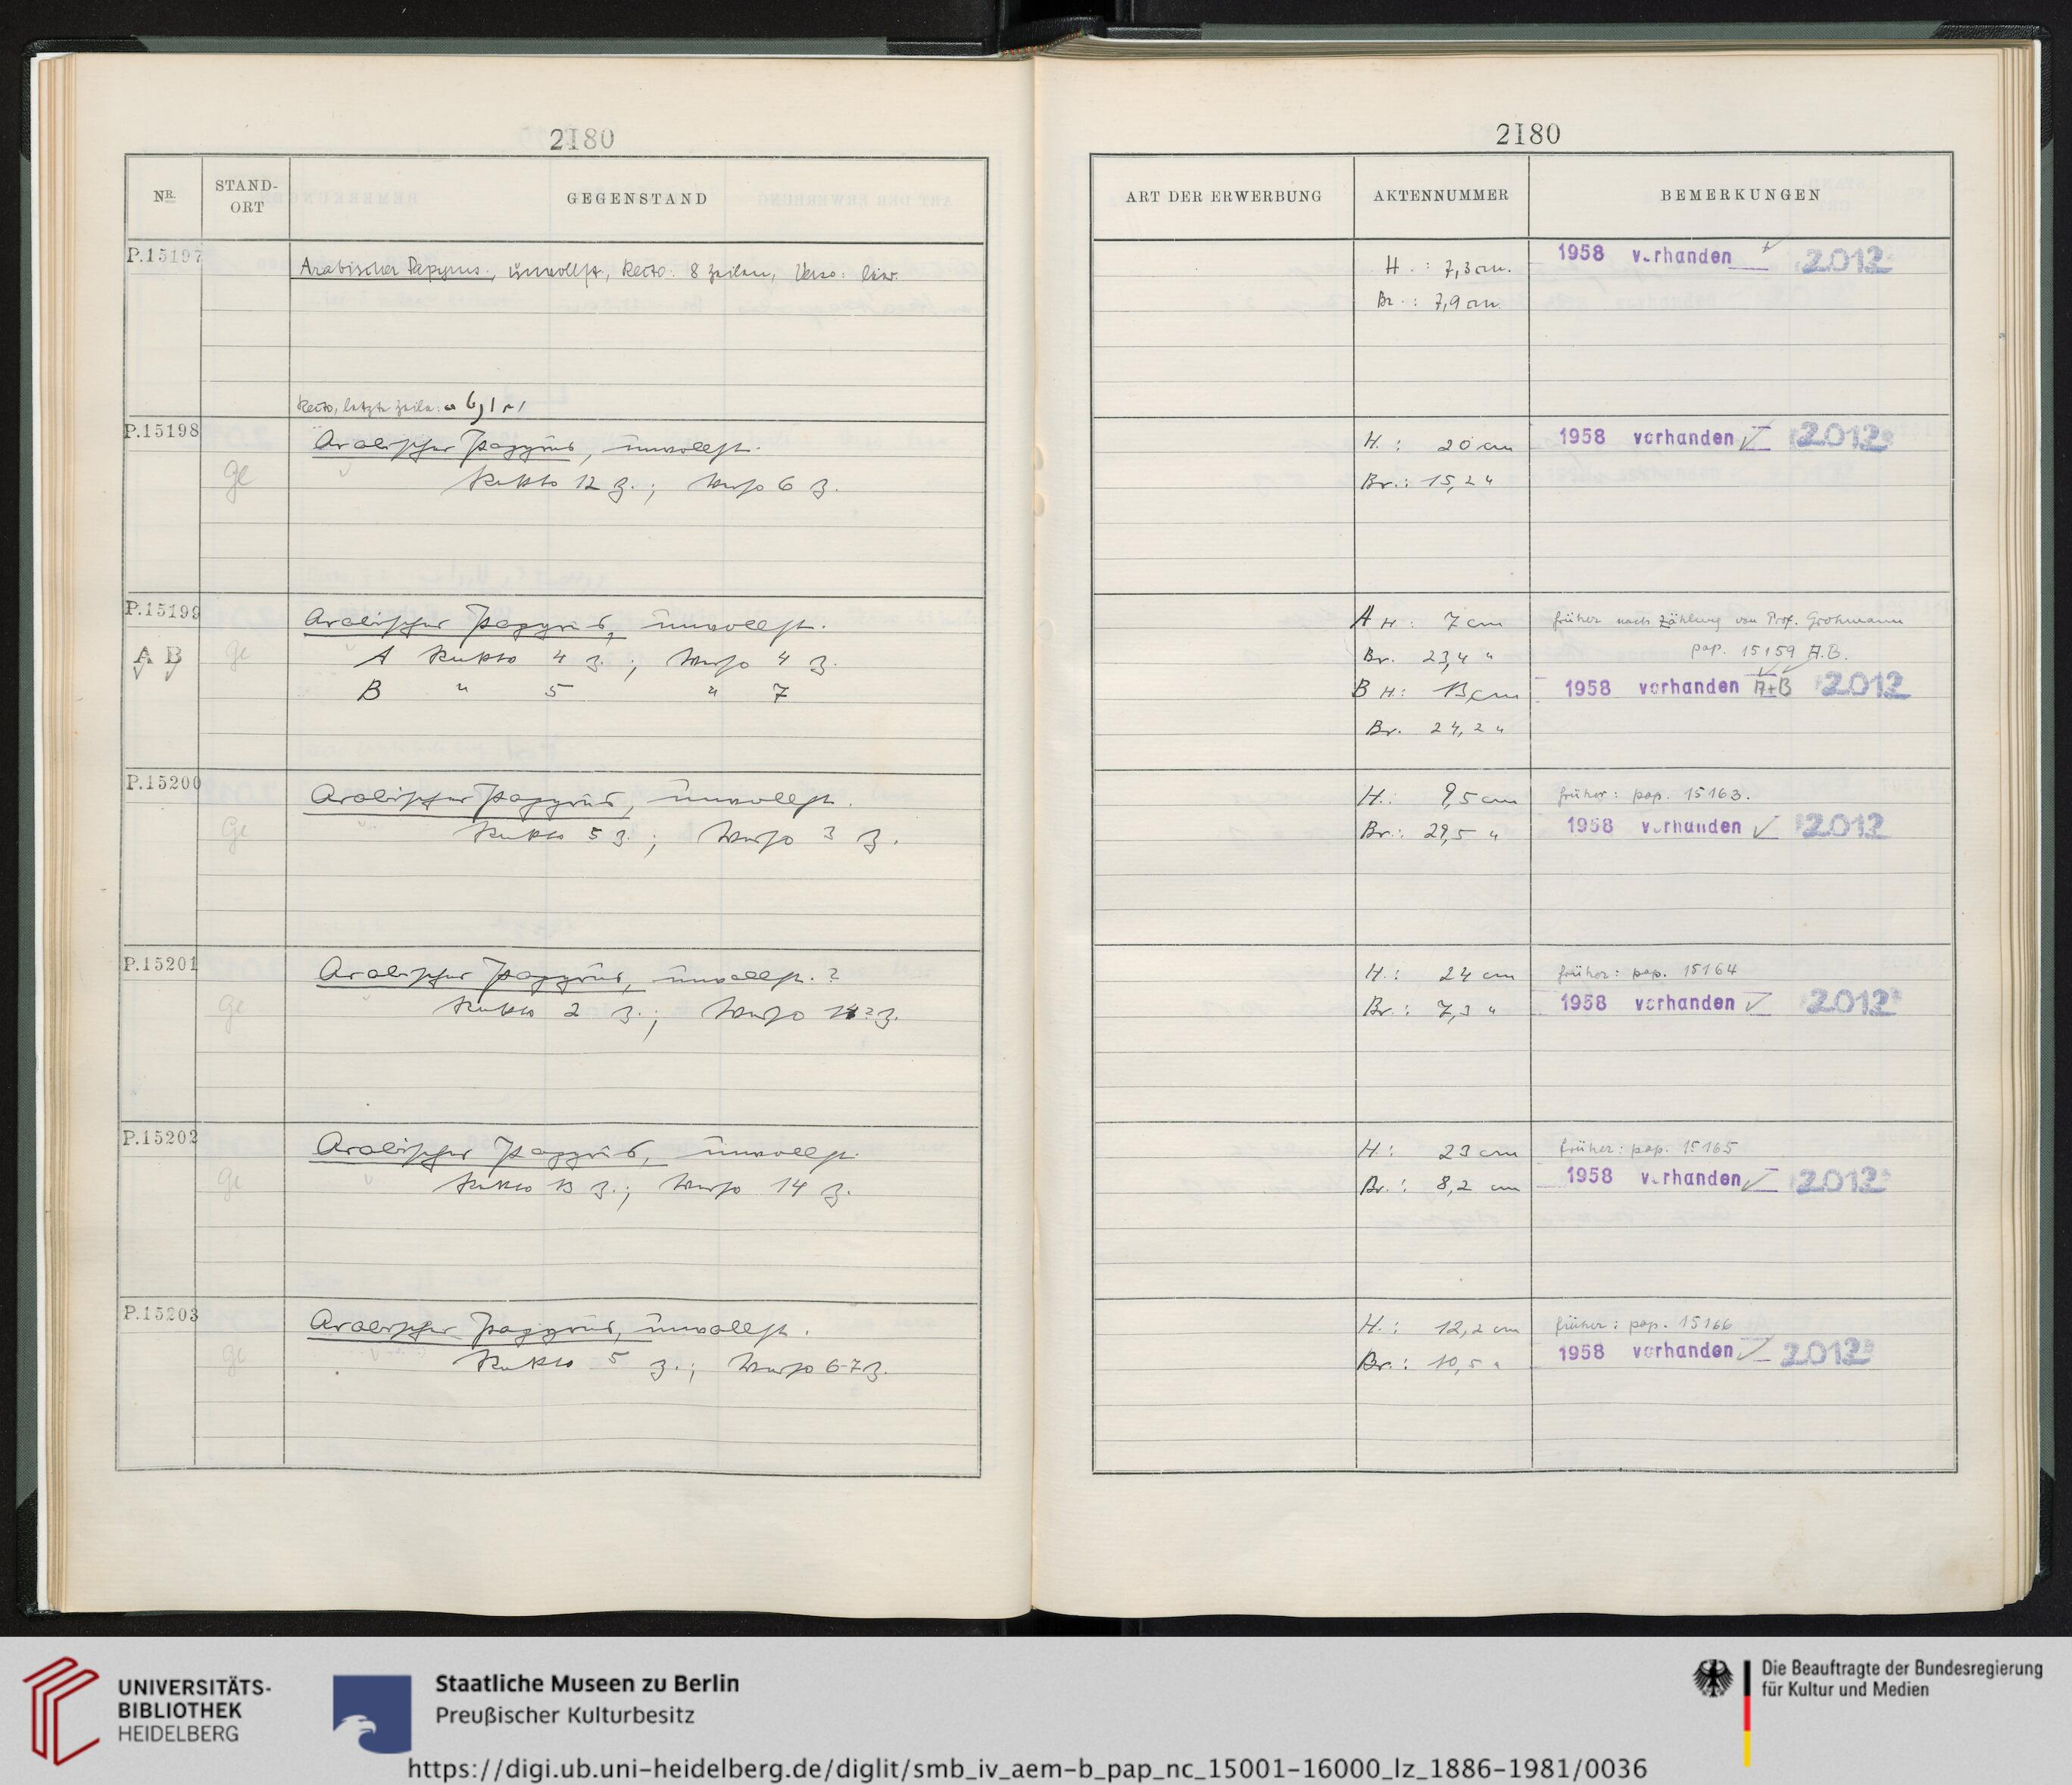 2180
NR.
STAND-
ORT
GEGENSTAND
P.15197
Arabischer Papyrus, unvollst., Recto: 8 Zeilen, Verso: leer.
Recto, letzte Zeile:
P.15198
Arabischer Papyrus, unvollst.
Ge
Rekto 12 Z.; Verso 6 Z.
P.15199
Arabischer Papyrus, unvollst.
A B
Ge
A Rekto 4 Z.; Verso 4 Z.
B " 5 " 7
P.15200
Arabischer Papyrus, unvollst.
Ge
Rekto 5 Z.; Verso 3 Z.
P.15201
Arabischer Papyrus, unvollst. ?
Ge
Rekto 2 Z.; Verso Z.
P.15202
Arabischer Papyrus, unvollst.
Ge
Rekto 13 Z.; Verso 14 Z.
P.15203
Arabischer Papyrus, unvollst.
Ge
Rekto 5 Z.; Verso 6-7 Z.
2180
ART DER ERWERBUNG
AKTENNUMMER
BEMERKUNGEN
H.: 7,3 cm.
1958 vorhanden 2012
Br.: 7,9 cm.
H.: 20 cm
1958 vorhanden ✓ 2012
Br.: 15,2 "
A H: 7 cm
früher nach Zählung von Prof. Grohmann
Br. 23,4 "
pap. 15159 A.B.
B H: 13 cm
1958 vorhanden A+B 2012
Br. 24,2 "
H.: 9,5 cm
früher: pap. 15163.
Br.: 29,5 "
1958 vorhanden ✓ 2012
H.: 24 cm
früher: pap. 15164
Br.: 7,3 "
1958 vorhanden ✓ 2012
H: 23 cm
früher: pap. 15165
Br.: 8,2 cm
1958 vorhanden ✓ 2012
H.: 12,2 cm
früher: pap. 15166
Br.: 10,5 "
1958 vorhanden ✓ 2012
UNIVERSITÄTS-
BIBLIOTHEK
HEIDELBERG
Staatliche Museen zu Berlin
Preußischer Kulturbesitz
Die Beauftragte der Bundesregierung
für Kultur und Medien
https://digi.ub.uni-heidelberg.de/diglit/smb_iv_aem-b_pap_nc_15001-16000_lz_1886-1981/0036